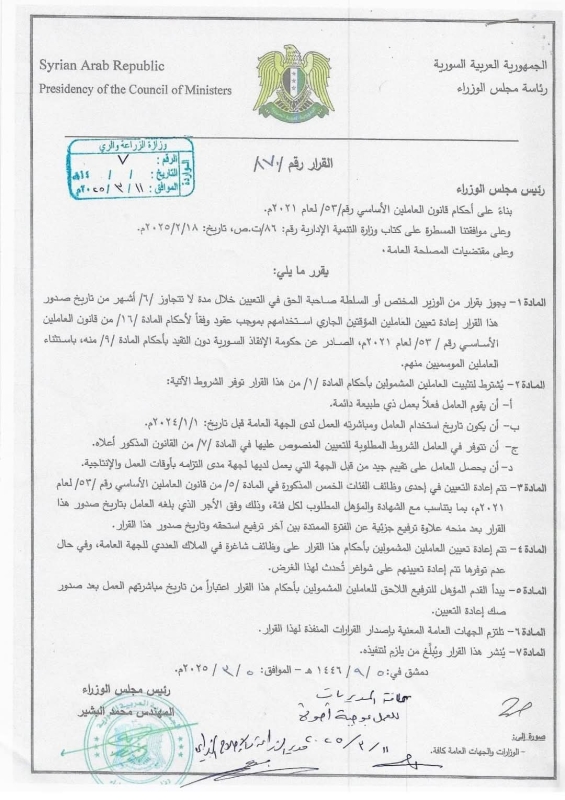 الجمهورية العربية السورية
رئاسة مجلس الوزراء
Syrian Arab Republic
Presidency of the Council of Ministers
وزارة الزراعة والري
الواردة
الرقم: ٧
التاريخ: / / ١٤هـ
الموافق: ١١ / ٣ / ٢٠٢٥م
القرار رقم /٨٧٠
رئيس مجلس الوزراء
بناءً على أحكام قانون العاملين الأساسي رقم/٥٣/ لعام ٢٠٢١م.
وعلى موافقتنا المسطرة على كتاب وزارة التنمية الإدارية رقم: ٨٦/ت.ص، تاريخ: ٢٠٢٥/٢/١٨م.
وعلى مقتضيات المصلحة العامة.
يقرر ما يلي:
المادة ١- يجوز بقرار من الوزير المختص أو السلطة صاحبة الحق في التعيين خلال مدة لا تتجاوز /٦/ أشهر من تاريخ صدور
هذا القرار إعادة تعيين العاملين المؤقتين الجاري استخدامهم بموجب عقود وفقاً لأحكام المادة /١٦/ من قانون العاملين
الأساسي رقم / ٥٣/ لعام ٢٠٢١م، الصادر عن حكومة الإنقاذ السورية دون التقيد بأحكام المادة /٩/ منه، باستثناء
العاملين الموسميين منهم.
المادة ٢- يُشترط لتثبيت العاملين المشمولين بأحكام المادة /١/ من هذا القرار توفر الشروط الآتية:
أ- أن يقوم العامل فعلاً بعمل ذي طبيعة دائمة.
ب- أن يكون تاريخ استخدام العامل ومباشرته العمل لدى الجهة العامة قبل تاريخ: ٢٠٢٤/١/١م.
ج- أن تتوفر في العامل الشروط المطلوبة للتعيين المنصوص عليها في المادة /٧/ من القانون المذكور أعلاه.
د- أن يحصل العامل على تقييم جيد من قبل الجهة التي يعمل لديها لجهة مدى التزامه بأوقات العمل والإنتاجية.
المادة ٣- تتم إعادة التعيين في إحدى وظائف الفئات الخمس المذكورة في المادة /٥/ من قانون العاملين الأساسي رقم /٥٣/ لعام
٢٠٢١م، بما يتناسب مع الشهادة والمؤهل المطلوب لكل فئة، وذلك وفق الأجر الذي بلغه العامل بتاريخ صدور هذا
القرار بعد منحه علاوة ترفيع جزئية عن الفترة الممتدة بين آخر ترفيع استحقه وتاريخ صدور هذا القرار.
المادة ٤- تتم إعادة تعيين العاملين المشمولين بأحكام هذا القرار على وظائف شاغرة في الملاك العددي للجهة العامة، وفي حال
عدم توفرها تتم إعادة تعيينهم على شواغر تُحدث لهذا الغرض.
المادة ٥- يبدأ القدم المؤهل للترفيع اللاحق للعاملين المشمولين بأحكام هذا القرار اعتباراً من تاريخ مباشرتهم العمل بعد صدور
صك إعادة التعيين.
المادة ٦- تلتزم الجهات العامة المعنية بإصدار القرارات المنفذة لهذا القرار.
المادة ٧- يُنشر هذا القرار ويُبلّغ من يلزم لتنفيذه.
دمشق في: ٥ / ٩ / ١٤٤٦ هـ - الموافق: ٥ / ٣ / ٢٠٢٥م.
رئيس مجلس الوزراء
المهندس محمد البشير
كافة المديريات
للعمل بموجبه أصولاً
٢٠٢٥/٣/١١
صورة إلى:
- الوزارات والجهات العامة كافة.